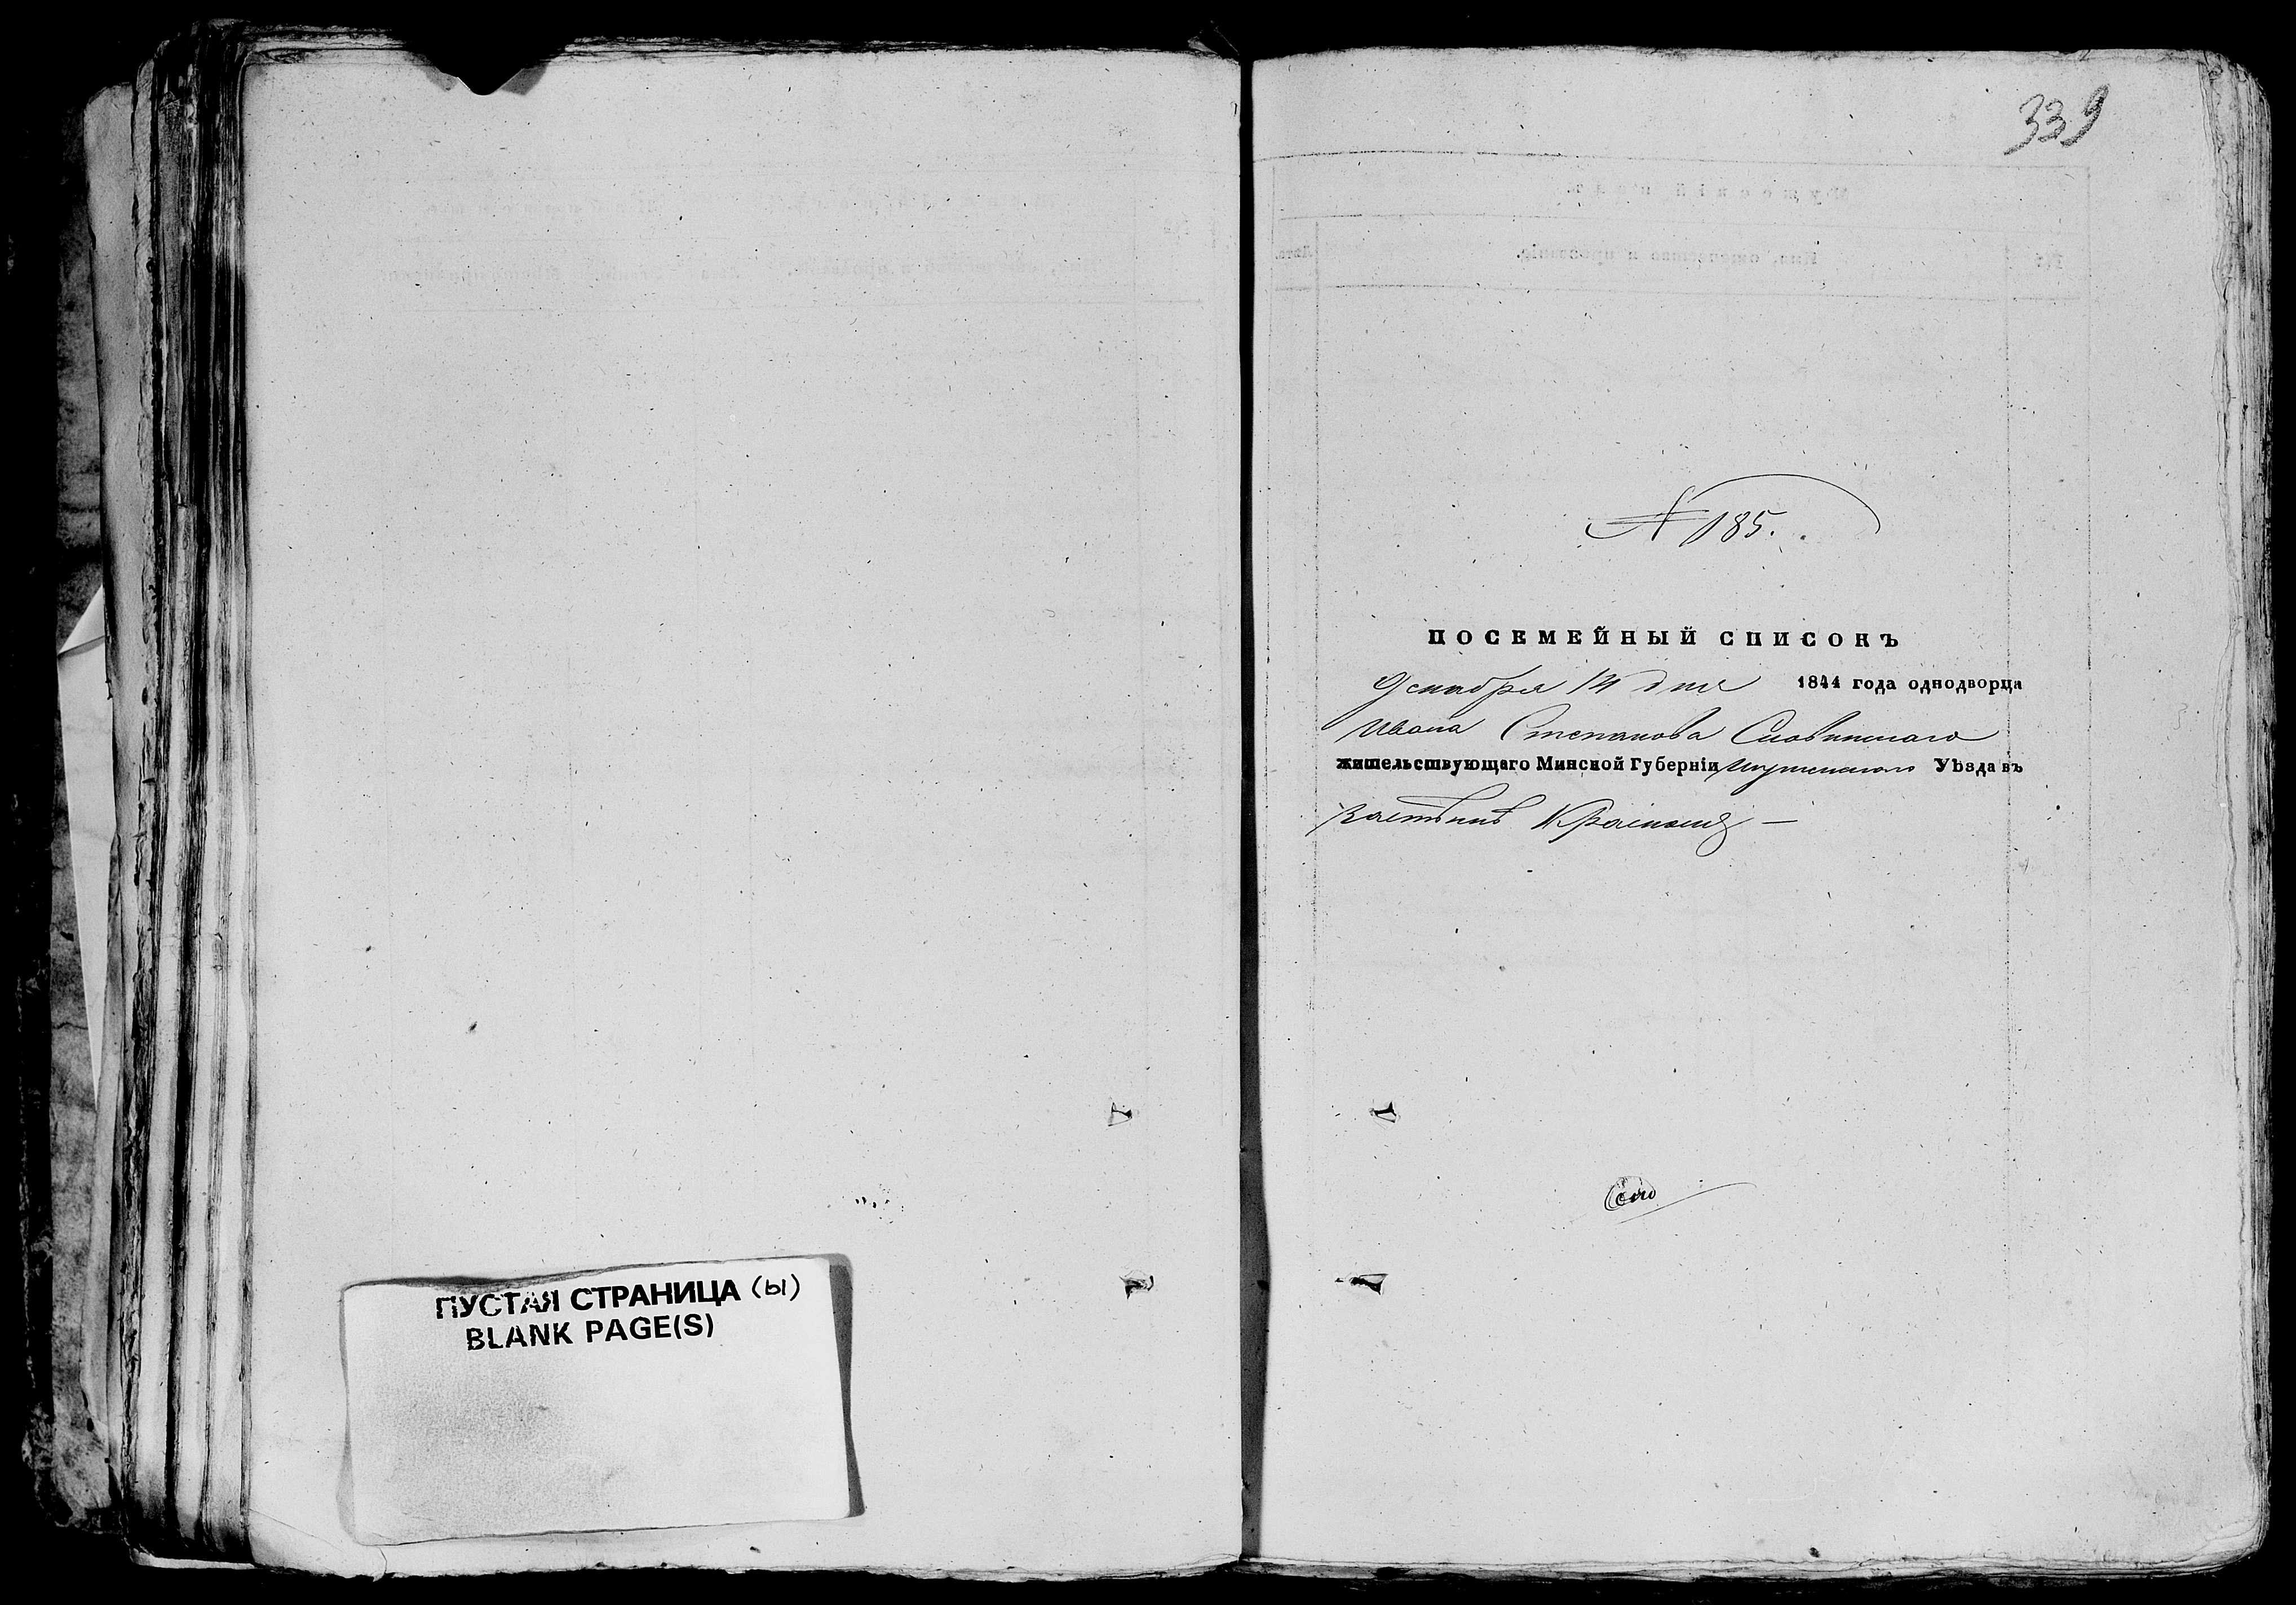 339
№ 185.
ПОСЕМЕЙНЫЙ СПИСОКЪ
Декабря 14 дня 1844 года однодворца
Ивана Степанова Словинскаго
жительствующаго Минской Губерніи Игуменскаго Уѣзда въ
застѣнкѣ
ПУСТАЯ СТРАНИЦА (Ы)
BLANK PAGE(S)